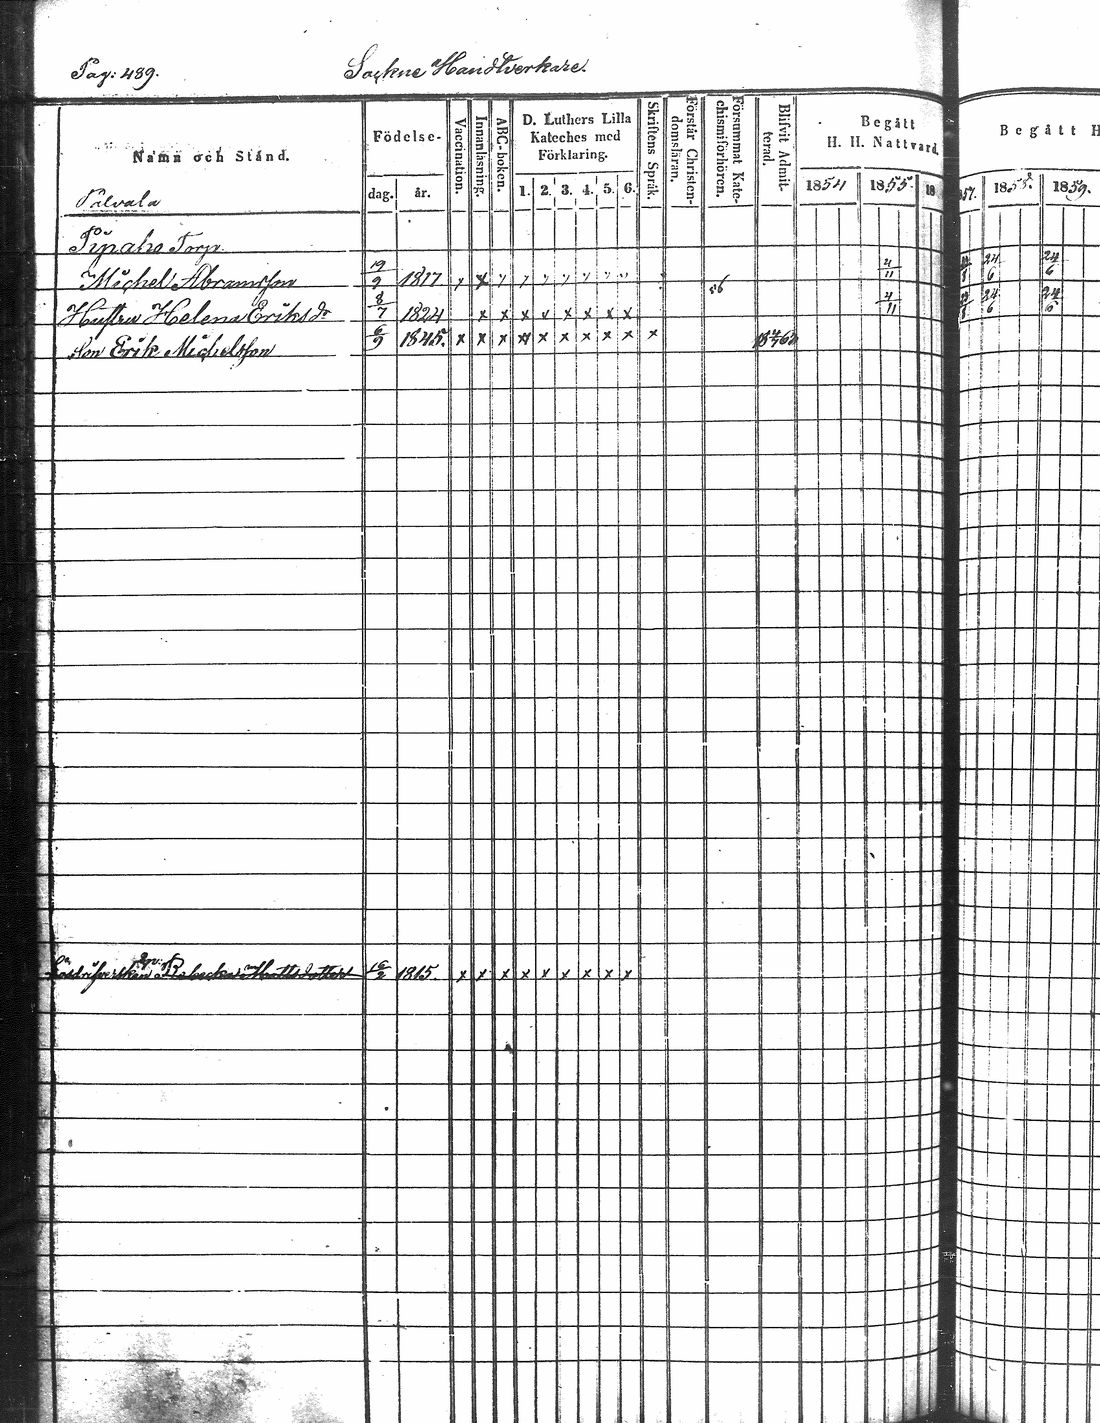 Pag: 489. Sockne Handtverkare.
Namn och Stånd.
Födelse-
dag. år.
Vaccination.
Innanläsning.
ABC-boken.
D. Luthers Lilla
Kateches med
Förklaring.
1. 2. 3. 4. 5. 6.
Skriftens Språk.
Förstår Christen-
domsläran.
Försummat Kate-
chismiförhören.
Blifvit Admit-
terad.
Begått
H. H. Nattvard.
1854 1855. 18
Begått H
57. 1858. 1859.
Palvala
Torp.
Michel Abramsson 19/9 1817 56 4/11 24/6 24/6
Hustru Helena Eriksdr 8/7 1824 x x x v x x x x 4/11 24/6 24/6
Son Erik Michelsson 6/9 1845. x x x x x x x x x x
Rebecka Mattsdotter 16/2 1815. x x x x x x x x x